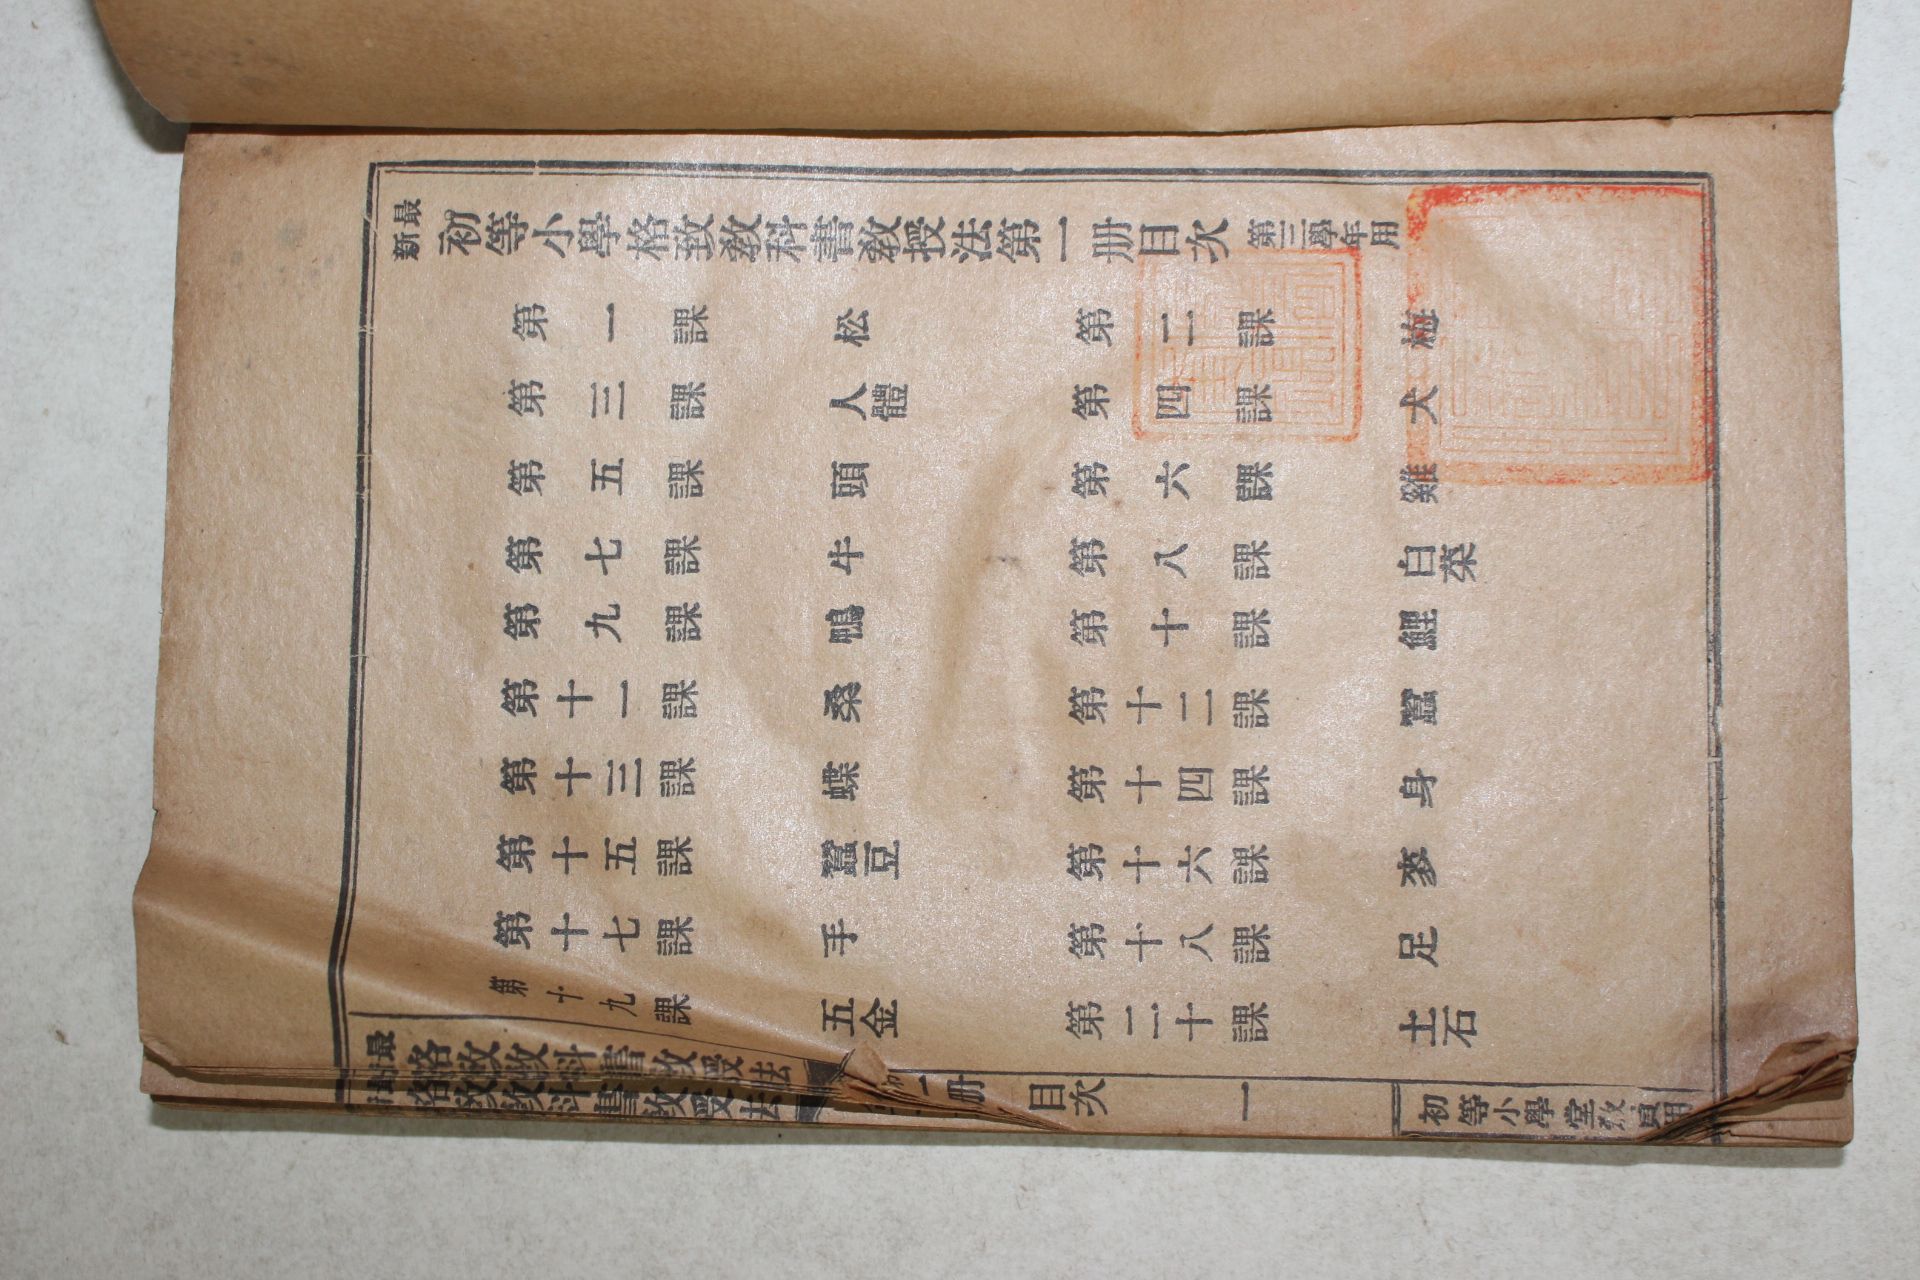 最新初等小學格致教科書教授法第一册目次 第三學年用
第一課 松 第二課 梅
第三課 人體 第四課 犬
第五課 頭 第六課 雞
第七課 牛 第八課 白菜
第九課 鴨 第十課 鯉
第十一課 桑 第十二課 蠶
第十三課 蝶 第十四課 身
第十五課 蠶豆 第十六課 麥
第十七課 手 第十八課 足
第十九課 五金 第二十課 土石
最 格致教科書教授法 册 目次 一 初等小學堂教員用